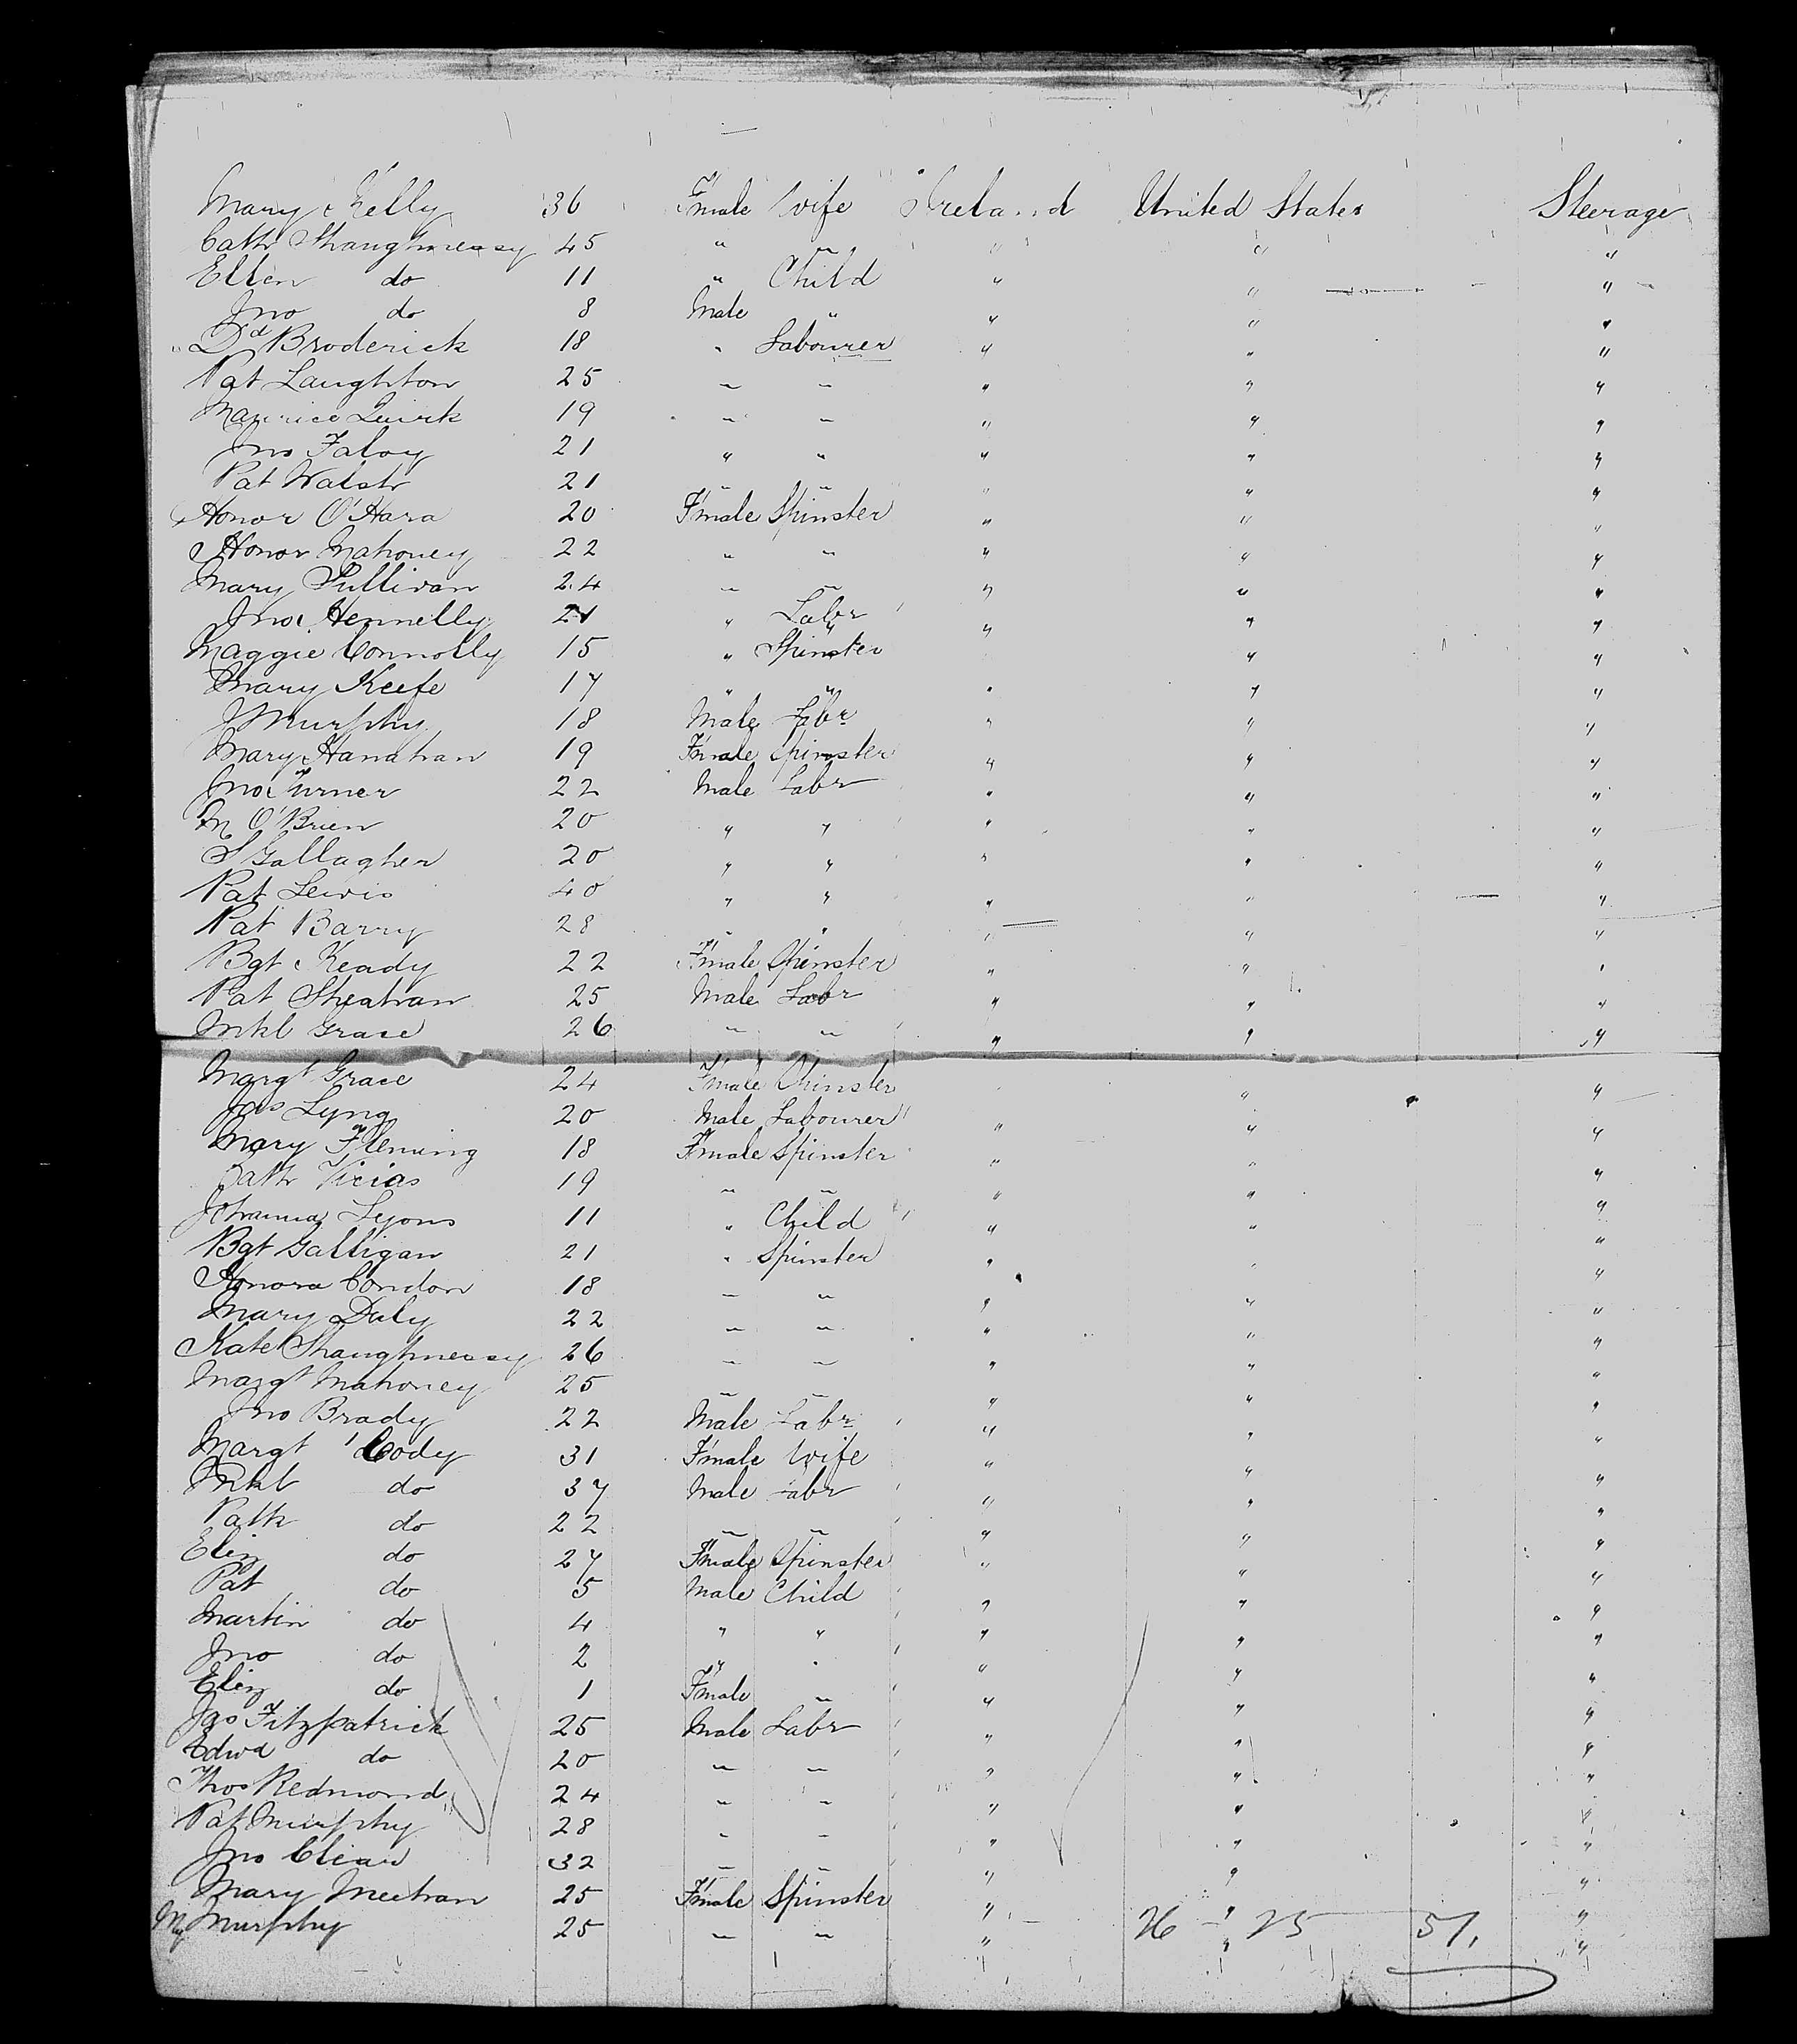 Mary Kelly 36 F'male Wife Ireland United States Steerage
Cath Shaughnessy 45 " " " " "
Ellen do 11 " Child " " "
Jno do 8 Male " " " "
Dd Broderick 18 " Labourer " " "
Pat Laughton 25 " " " " "
Maurice Quirk 19 " " " " "
Jno Faloy 21 " " " " "
Pat Walsh 21 " " " " "
Honor O'Hara 20 F'male Spinster " " "
Honor Mahoney 22 " " " " "
Mary Sullivan 24 " " " " "
Jno Hennelly 21 " Labr " " "
Maggie Connolly 15 " Spinster " "
Mary Keefe 17 " " " " "
J Murphy 18 Male Labr " " "
Mary Hanahan 19 F'male Spinster " " "
Jno Turner 22 Male Labr " " "
M O'Brien 20 " " " " "
S Gallagher 20 " " " " "
Pat Lewis 40 " " " " "
Pat Barry 28 " " " " "
Bgt Keady 22 F'male Spinster " " "
Pat Sheahan 25 Male Labr " " "
Mkl Grace 26 " " " " "
Margt Grace 24 F'male Spinster " "
Jas Lyng 20 Male Labourer " " "
Mary Fleming 18 F'male Spinster " " "
Cath 19 " " " " "
Johanna Lyons 11 " Child " " "
Bgt Galligan 21 " Spinster " " "
Honora Condon 18 " " " " "
Mary Daly 22 " " " " "
Kate Shaughnessy 26 " " " " "
Margt Mahoney 25 " " " " "
Jno Brady 22 Male Labr " " "
Margt Cody 31 F'male Wife " " "
Mkl do 37 Male Labr " " "
Patk do 22 " " " " "
Eliz do 27 F'male Spinster " " "
Pat do 5 Male Child " " "
Martin do 4 " " " " "
Jno do 2 " " " " "
Eliz do 1 F'male " " " "
Jas Fitzpatrick 25 Male Labr " " "
Edwd do 20 " " " " "
Thos Redmond 24 " " " " "
Pat Murphy 28 " " " " "
Jno 32 " " " " "
Mary Meehan 25 F'male Spinster " " "
My Murphy 25 " " " " "
26 25 51